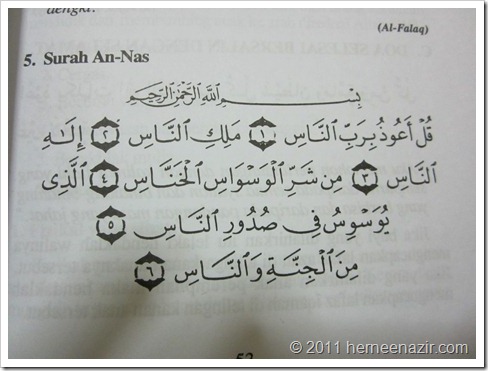 dengki.
(Al-Falaq)
5. Surah An-Nas
بِسْمِ ٱللَّهِ ٱلرَّحْمَٰنِ ٱلرَّحِيمِ
قُلْ أَعُوذُ بِرَبِّ ٱلنَّاسِ ١ مَلِكِ ٱلنَّاسِ ٢ إِلَٰهِ
ٱلنَّاسِ ٣ مِن شَرِّ ٱلْوَسْوَاسِ ٱلْخَنَّاسِ ٤ ٱلَّذِى
يُوَسْوِسُ فِى صُدُورِ ٱلنَّاسِ ٥
مِنَ ٱلْجِنَّةِ وَٱلنَّاسِ ٦
© 2011 hemeenazir.com